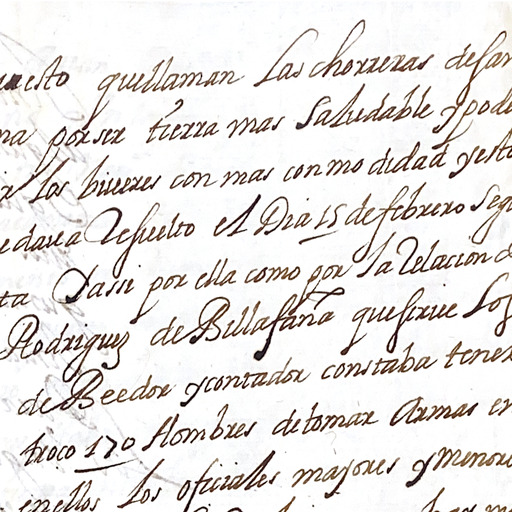 puesto quellaman Las chorreras desan
na porser tierra mas Saludable y pode
ir los biueres con mas conmodidad yesto
edaua Resuelto el Dia 15 de febrero Segu
ta Yassi por ella como por la Relacion d
Rodriguez de Billafaña quesirue Los
de Beedor ycontador constaba tener
troço 170 Hombres detomar Armas en
enellos los oficiales majores y menore